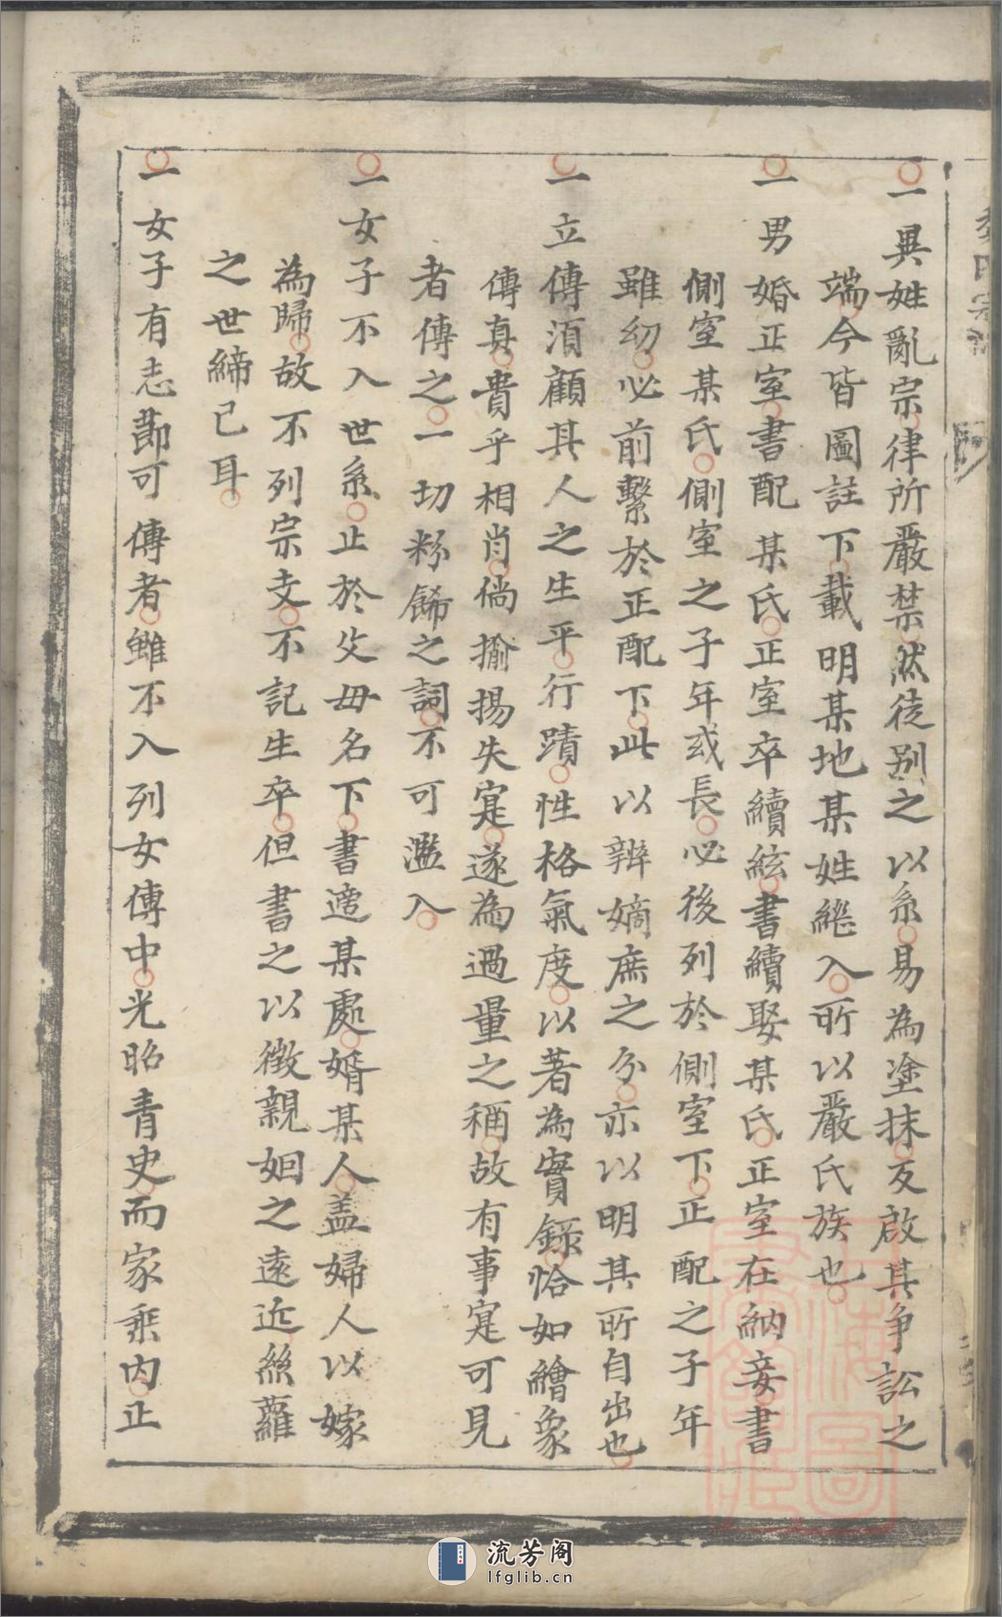 一異姓亂宗律所嚴禁然徒别之以系易為塗抹反啟其争訟之
端今皆圖註下載明某地某姓繼入所以嚴氏族也
一男婚正室書配某氏正室卒續絃書續娶某氏正室在納妾書
側室某氏側室之子年或長必後列於側室下正配之子年
雖幼必前繫於正配下此以辨嫡庶之分亦以明其所自出也
一立傳須顧其人之生平行蹟性格氣度以著為實錄恰如繪象
傳真貴乎相肖倘揄揚失寔遂為過量之稱故有事寔可見
者傳之一切粉餙之詞不可濫入
一女子不入世系止於父母名下書適某處婿某人盖婦人以嫁
為歸故不列宗支不記生卒但書之以徵親姻之遠近絲蘿
之世締已耳
一女子有志節可傳者雖不入列女傳中光昭青史而家乘内正
流芳阁
lfglib.cn